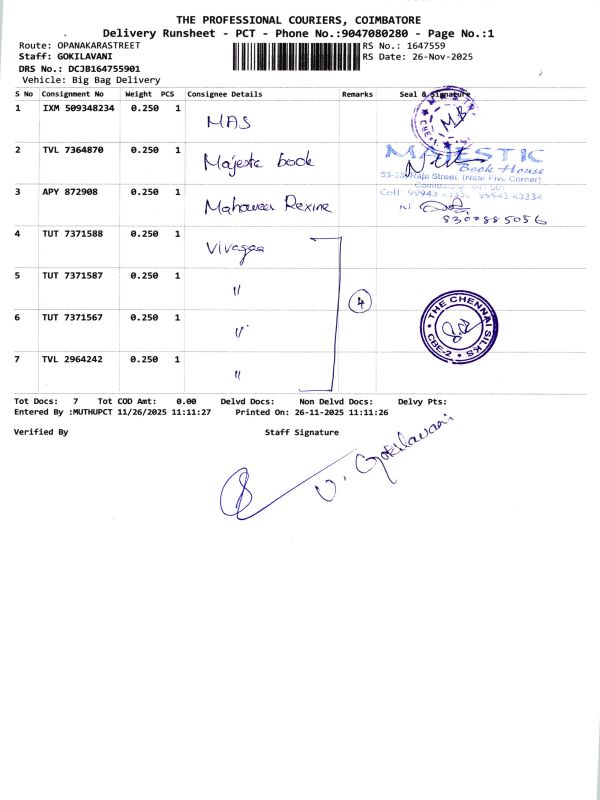 THE PROFESSIONAL COURIERS, COIMBATORE
Delivery Runsheet - PCT - Phone No.:9047080280 - Page No.:1
Route: OPANAKARASTREET
RS No.: 1647559
Staff: GOKILAVANI
RS Date: 26-Nov-2025
DRS No.: DCJB164755901
Vehicle: Big Bag Delivery
S No Consignment No Weight PCS Consignee Details Remarks Seal & Signature
1 IXM 509348234 0.250 1 MAS
2 TVL 7364870 0.250 1 Majestic book
MAJESTIC
Book House
53-55, Raja Street, (Near Five Corner)
Coimbatore - 641 001
3 APY 872908 0.250 1 Mahaveer Rexine
8300885056
4 TUT 7371588 0.250 1 Vivagaa
5 TUT 7371587 0.250 1 "
4
6 TUT 7371567 0.250 1 "
THE CHENNAI SILKS
CBE-2
7 TVL 2964242 0.250 1 "
Tot Docs: 7 Tot COD Amt: 0.00 Delvd Docs: Non Delvd Docs: Delvy Pts:
Entered By :MUTHUPCT 11/26/2025 11:11:27 Printed On: 26-11-2025 11:11:26
Verified By Staff Signature
V. Gokilavani